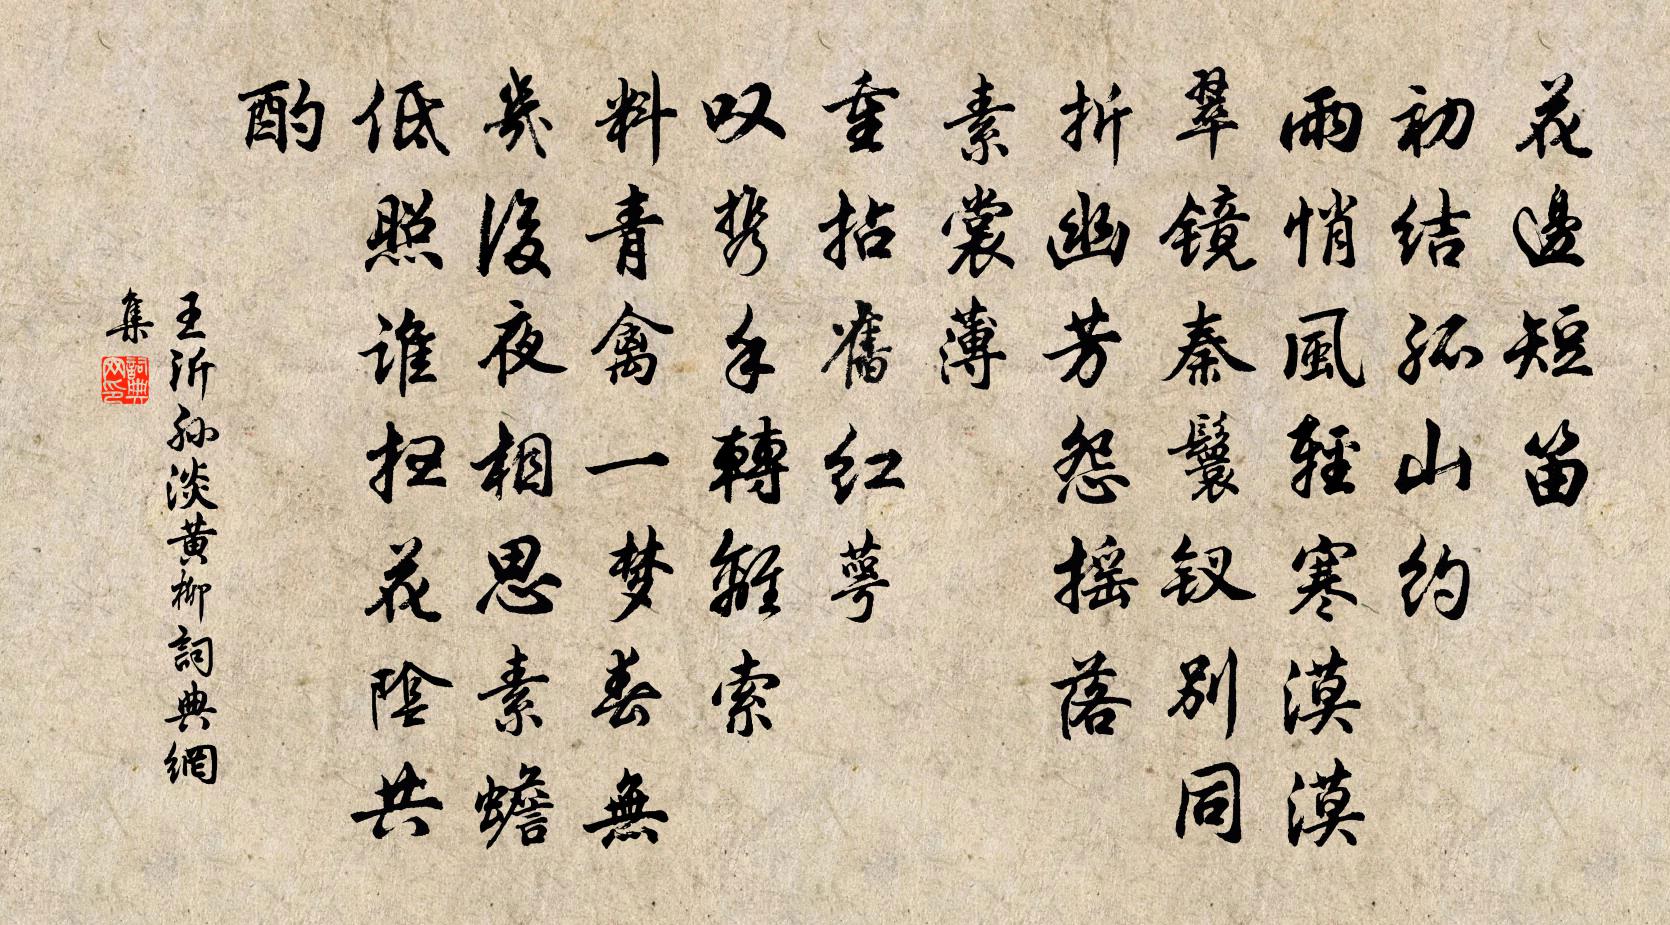 花邊短笛
初结孤山约
雨悄風輕寒漠漠
翠镜秦鬟钗别同
折幽芳怨摇落
素裳薄
重拈舊红萼
叹携手轉離索
料青禽一梦春無
幾後夜相思素蟾
低照谁扫花陰共
酌
王沂孙淡黄柳詞典網
集
詞典网印